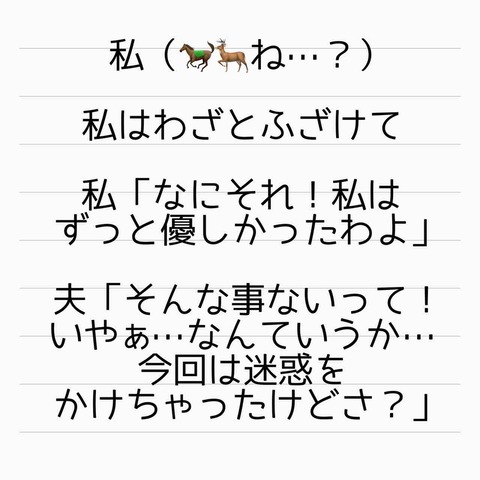 私（🐎🦌ね…？）
私はわざとふざけて
私「なにそれ！私は
ずっと優しかったわよ」
夫「そんな事ないって！
いやぁ…なんていうか…
今回は迷惑を
かけちゃったけどさ？」